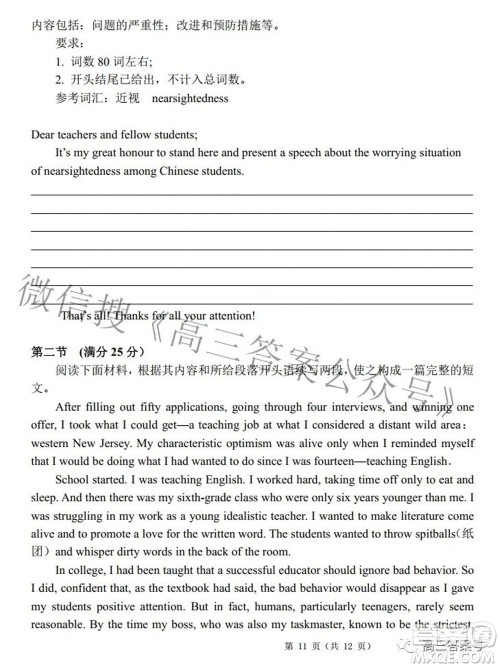 内容包括：问题的严重性；改进和预防措施等。
要求：
1. 词数 80 词左右;
2. 开头结尾已给出，不计入总词数。
参考词汇：近视 nearsightedness
Dear teachers and fellow students;
It's my great honour to stand here and present a speech about the worrying situation
of nearsightedness among Chinese students.
That's all! Thanks for all your attention!
第二节 (满分 25 分）
阅读下面材料，根据其内容和所给段落开头语续写两段，使之构成一篇完整的短
文。
After filling out fifty applications, going through four interviews, and winning one
offer, I took what I could get—a teaching job at what I considered a distant wild area：
western New Jersey. My characteristic optimism was alive only when I reminded myself
that I would be doing what I had wanted to do since I was fourteen—teaching English.
School started. I was teaching English. I worked hard, taking time off only to eat and
sleep. And then there was my sixth-grade class who were only six years younger than me. I
was struggling in my work as a young idealistic teacher. I wanted to make literature come
alive and to promote a love for the written word. The students wanted to throw spitballs（纸
团）and whisper dirty words in the back of the room.
In college, I had been taught that a successful educator should ignore bad behavior. So
I did, confident that, as the textbook had said, the bad behavior would disappear as I gave
my students positive attention. But in fact, humans, particularly teenagers, rarely seem
reasonable. By the time my boss, who was also my taskmaster, known to be the strictest,
第 11 页（共 12 页）
微信搜《高三答案公众号》
高三答案号
答案圈